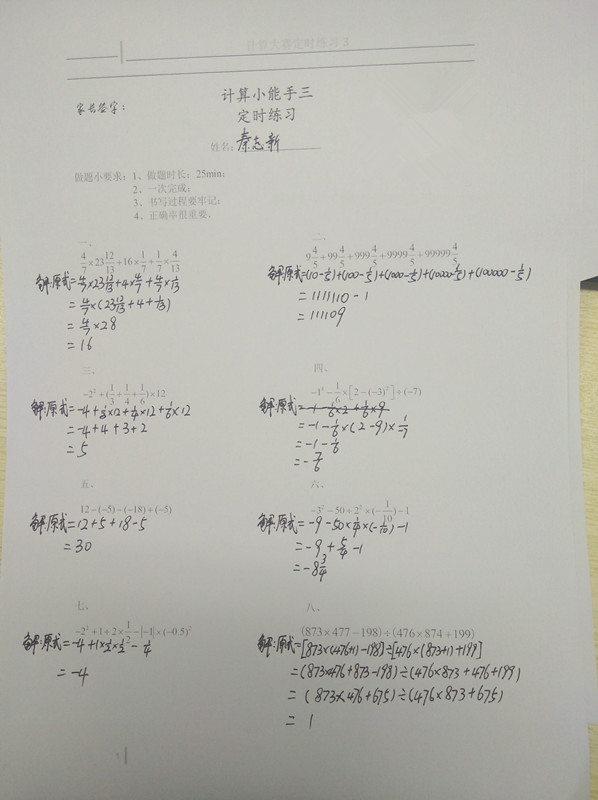 计算大赛定时练习 3
家长签字:
计算小能手三
定时练习
姓名: 秦志新
做题小要求: 1、做题时长: 25min;
2、一次完成;
3、书写过程要牢记;
4、正确率很重要。
一、
4/7×23 12/13+16×1/7+1/7×4/13
解:原式=4/7×23 12/13+4×4/7+4/7×1/13
=4/7×(23 12/13+4+1/13)
=4/7×28
=16
二、
9 4/5+99 4/5+999 4/5+9999 4/5+99999 4/5
解:原式=(10-1/5)+(100-1/5)+(1000-1/5)+(10000-1/5)+(100000-1/5)
=1111110-1
=111109
三、
-2²+(1/3+1/4+1/6)×12
解:原式=-4+1/3×12+1/4×12+1/6×12
=-4+4+3+2
=5
四、
-1⁴-1/6×[2-(-3)²]÷(-7)
解:原式=-1-1/6×2+1/6×9
=-1-1/6×(2-9)×1/7
=-1-1/6
=-7/6
五、
12-(-5)-(-18)+(-5)
解:原式=12+5+18-5
=30
六、
-3²-50÷2²×(-1/10)-1
解:原式=-9-50×1/4×(-1/10)-1
=-9+5/4-1
=-8 3/4
七、
-2²+1÷2×1/2-|-1|×(-0.5)²
解:原式=-4+1×1/2×1/2-1/4
=-4
八、
(873×477-198)÷(476×874+199)
解:原式=[873×(476+1)-198]÷[476×(873+1)+199]
=(873×476+873-198)÷(476×873+476+199)
=(873×476+675)÷(476×873+675)
=1